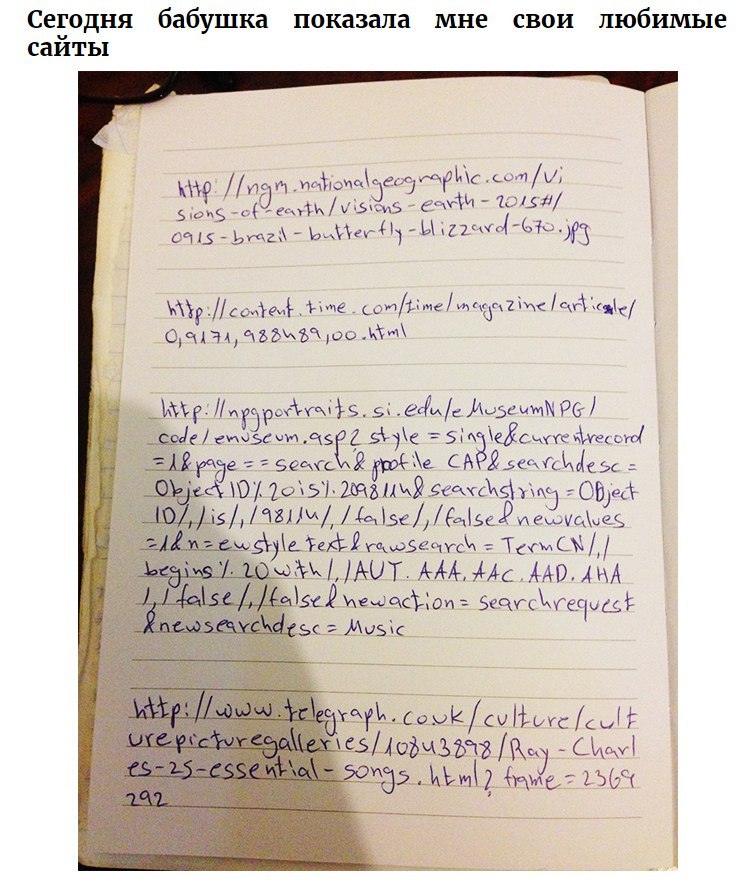 Сегодня бабушка показала мне свои любимые
сайты
http://ngm.nationalgeographic.com/vi
sions-of-earth/visions-earth-2015#/
0915-brazil-butterfly-blizzard-670.jpg
http://content.time.com/time/magazine/article/
0,9171,988489,00.html
http://npgportraits.si.edu/eMuseumNPG/
code/emuseum.asp?style=single&currentrecord
=1&page==search&profile CAP&searchdesc=
Object ID%20is%209811u&searchstring=OBject
ID/,/is/,/9811u/,/false/,/false&newvalues
=1&n=ewstyle text&rawsearch=TermCN/,/
begins%20with/,/AUT.AAA.AAC.AAD.AHA
/,/false/,/false&newaction=searchrequest
&newsearchdesc=Music
http://www.telegraph.co.uk/culture/cult
urepicturegalleries/10843898/Ray-Charl
es-25-essential-songs.html?frame=2369
292